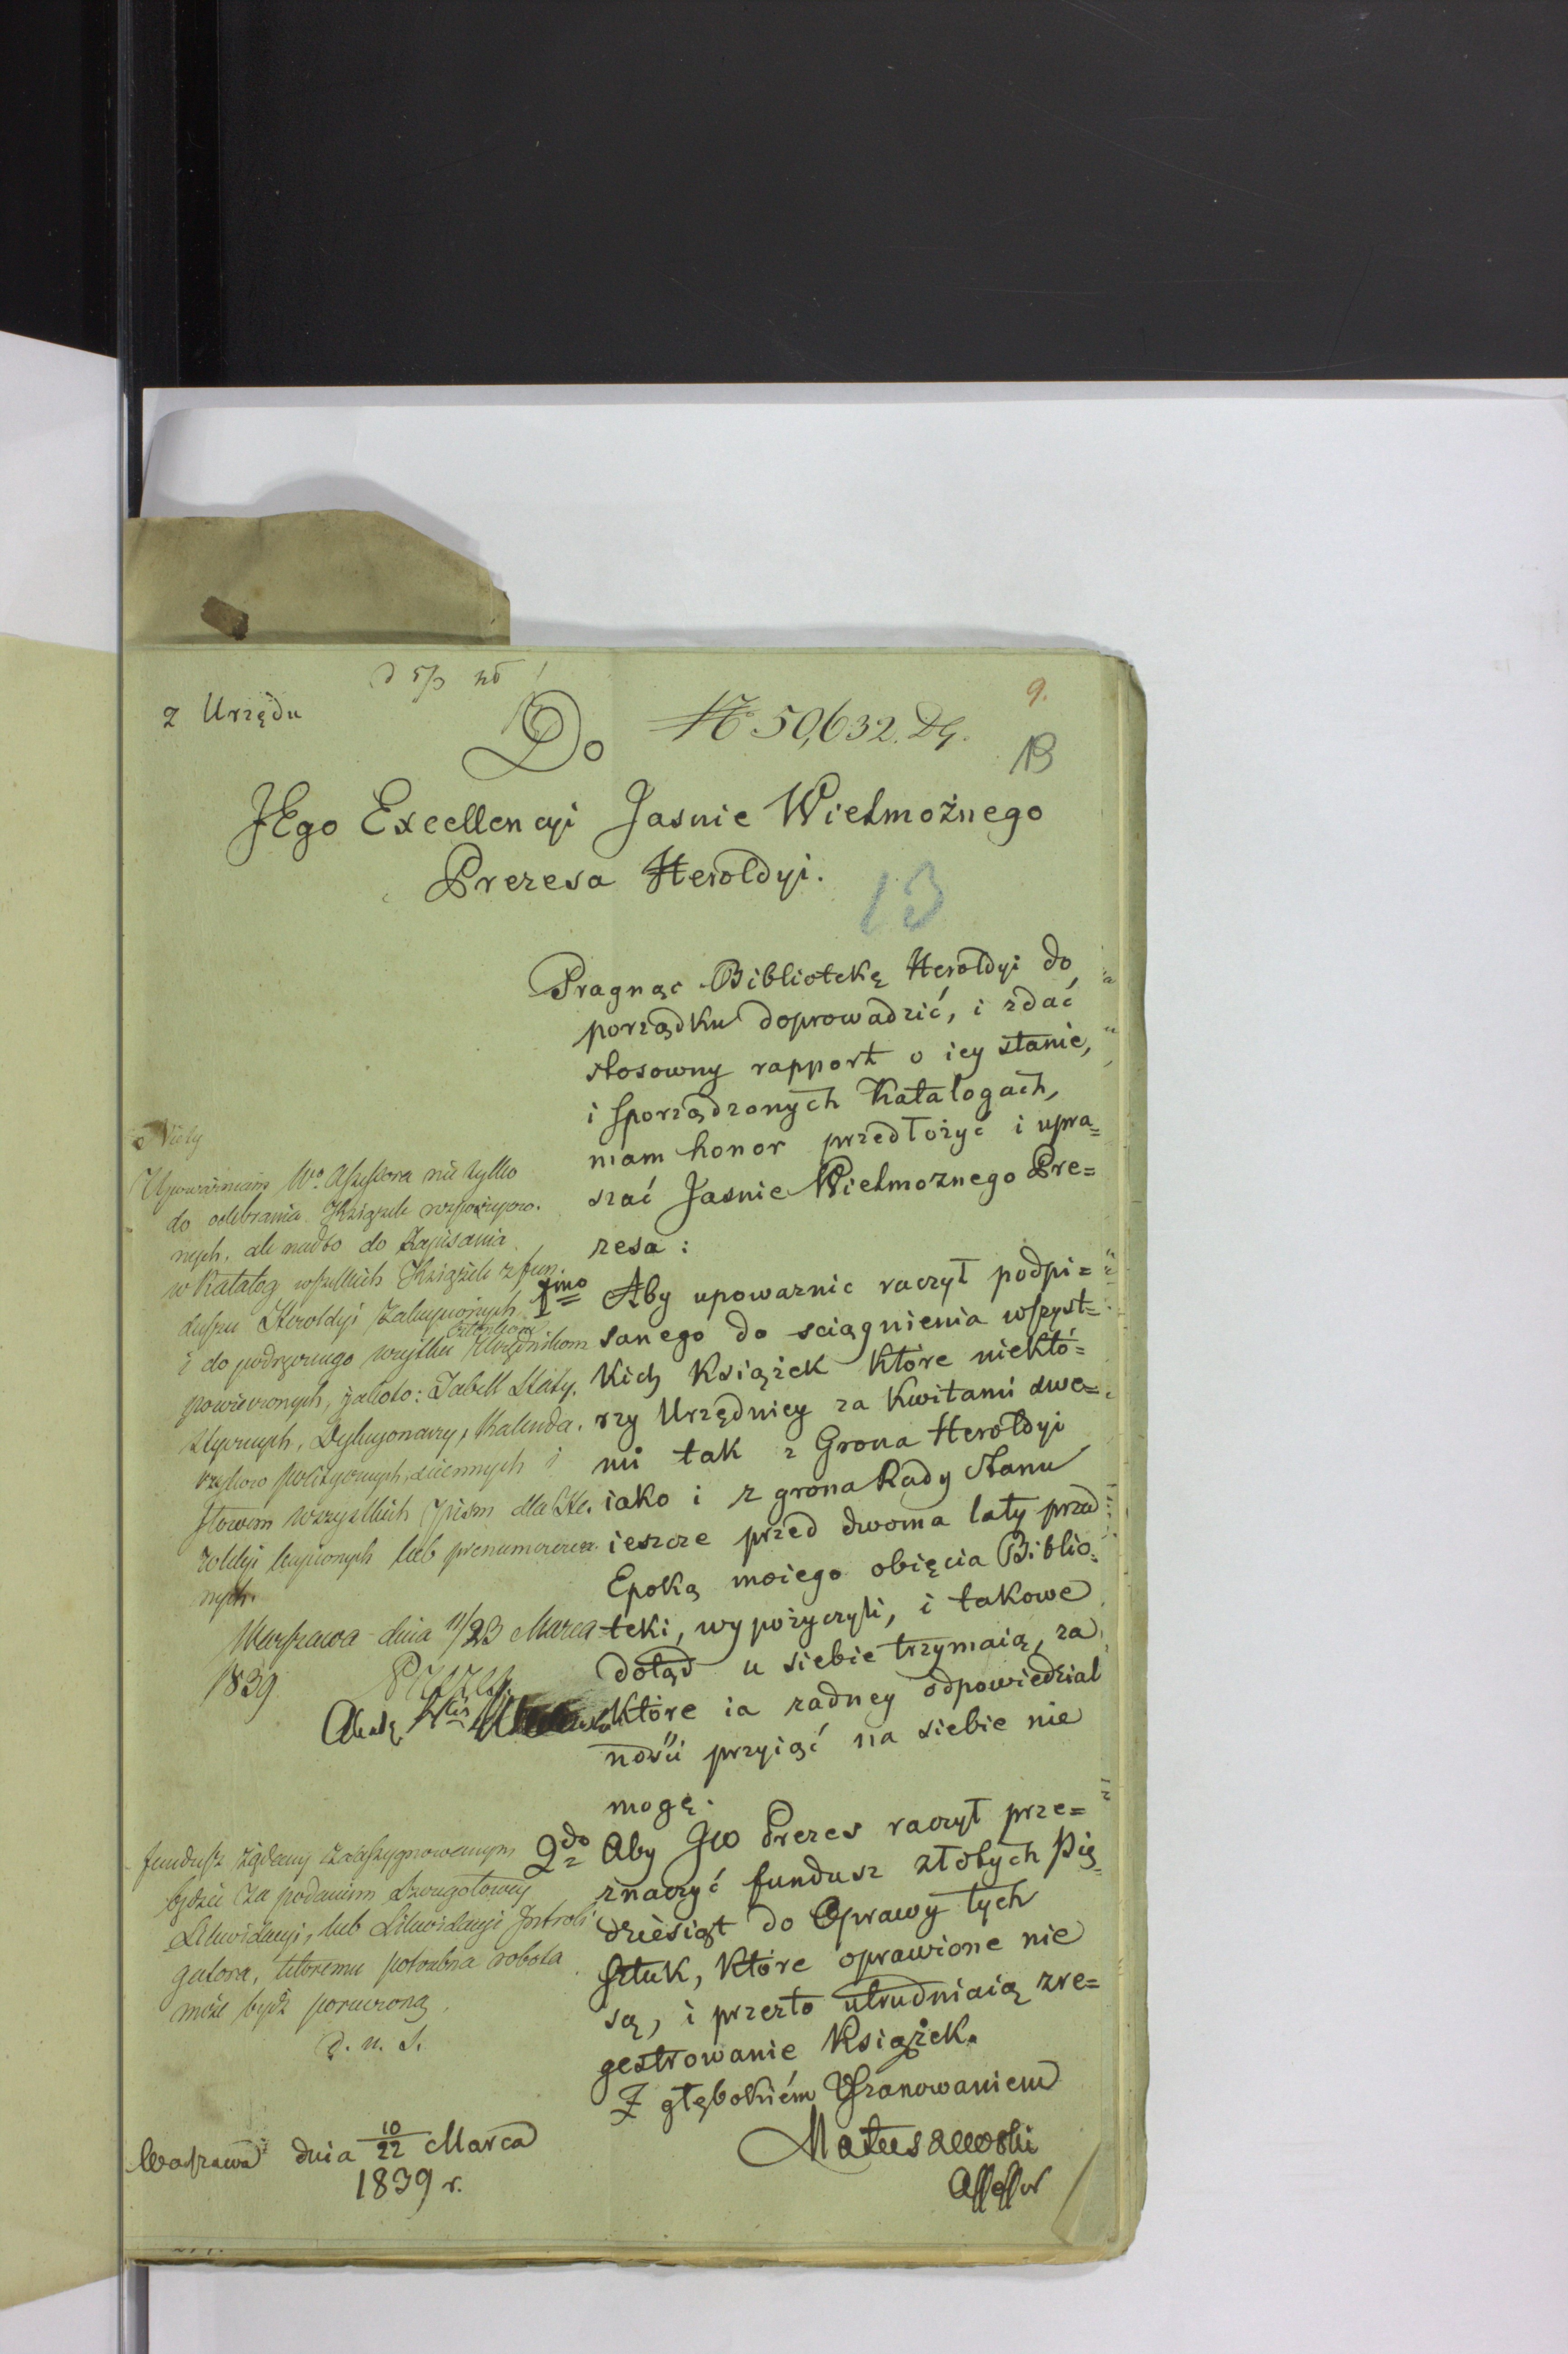 z Urzędu
9.
Do
No 50,632. DG.
13
JEgo Excellencyi Jasnie Wielmożnego
Prezesa Heroldyi.
13
Pragnąc Bibliotekę Heroldyi do
porządku doprowadzić, i zdać
stosowny rapport o iey stanie,
i sporządzonych Katalogach,
mam honor przedłożyć i upra=
szać Jasnie Wielmoznego Pre=
zesa:
1mo Aby upowaznic raczył podpi=
sanego do sciągnienia wszyst=
kich Książek które niektó=
rzy Urzędnicy za Kwitami swe=
mi tak z Grona Heroldyi
iako i z grona Rady Stanu
ieszcze przed dwoma laty przed
Epoką moiego obięcia Biblio=
teki, wypożyczyli, i takowe
dotąd u siebie trzymaią, za
które ia zadney odpowiedzial
ności przyiąć na siebie nie
mogę.
2do Aby JW Prezes raczył prze=
znaczyć fundusz złotych Pię=
dziesiąt do Oprawy tych
sztuk, które oprawione nie
są, i przezto utrudniaią zre=
gestrowanie Książek.
Z głębokiém Uszanowaniem
Matuszewski
Assessor
Warszawa dnia 10/22 Marca
1839 r.
Upoważniam Wo. Assessora nie tylko
do odebrania Książek rozpożyczo.
nych, ale nadto do Zapisania
w Katalog wszelkich Książek z fun.
duszu Heroldyi Zakupionych,
i do podręcznego użytku Członkom Urzędnikom
powierzonych, jakoto: Tabell Staty.
stycznych, Dykcyonarzy, Kalenda.
rzyków politycznych, ściennych i
słowem wszystkich pism dla He.
roldyi kupionych lub prenumerowa.
nych.
Warszawa dnia 11/23 Marca
1839
Prezes
fundusz żądany zaassygnowanym
będzie za podaniem szczegółowey
Likwidacyi, lub Likwidacyi Introli
gatora, któremu potrzebna robota
może bydź poruczoną.
D. u. S.